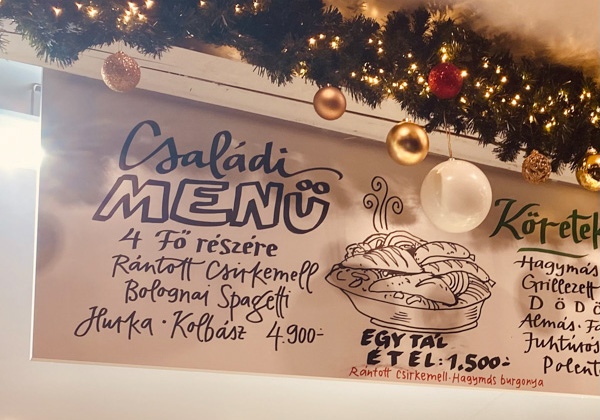 Családi
MENÜ
4 Fő részére
Rántott Csirkemell
Bolognai Spagetti
Hurka · Kolbász 4.900:-
EGY TÁL
ÉTEL: 1.500:-
Rántott Csirkemell · Hagymás burgonya
Köretek
Hagymás
Grillezett
DÖDÖ
Almás · Fa
Juhtúrós
Polenta